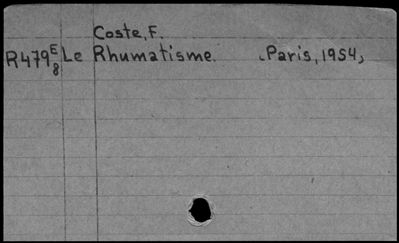 Coste, F.
R479 E/8 Le Rhumatisme. (Paris, 1954)